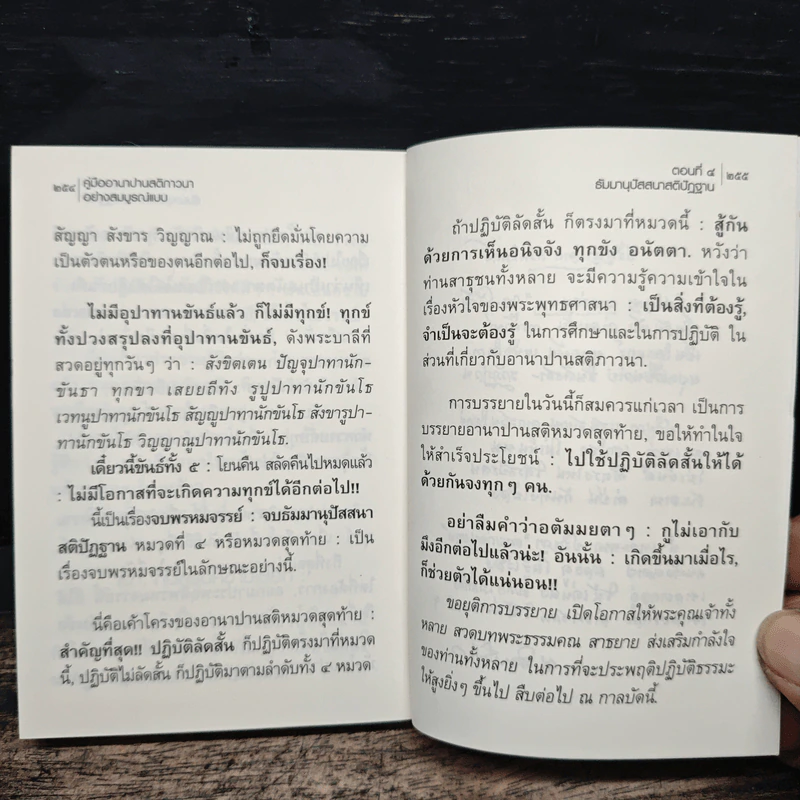 ๒๕๔ คู่มืออานาปานสติภาวนา
อย่างสมบูรณ์แบบ
สัญญา สังขาร วิญญาณ : ไม่ถูกยึดมั่นโดยความ
เป็นตัวตนหรือของตนอีกต่อไป, ก็จบเรื่อง!
ไม่มีอุปาทานขันธ์แล้ว ก็ไม่มีทุกข์! ทุกข์
ทั้งปวงสรุปลงที่อุปาทานขันธ์, ดังพระบาลีที่
สวดอยู่ทุกวันๆ ว่า : สังขิตเตน ปัญจุปาทานัก-
ขันธา ทุกขา เสยยถีทัง รูปูปาทานักขันโธ
เวทนูปาทานักขันโธ สัญญูปาทานักขันโธ สังขารูปา-
ทานักขันโธ วิญญาณูปาทานักขันโธ.
เดี๋ยวนี้ขันธ์ทั้ง ๕ : โยนคืน สลัดคืนไปหมดแล้ว
: ไม่มีโอกาสที่จะเกิดความทุกข์ได้อีกต่อไป!!
นี้เป็นเรื่องจบพรหมจรรย์ : จบธัมมานุปัสสนา
สติปัฏฐาน หมวดที่ ๔ หรือหมวดสุดท้าย : เป็น
เรื่องจบพรหมจรรย์ในลักษณะอย่างนี้.
นี่คือเค้าโครงของอานาปานสติหมวดสุดท้าย :
สำคัญที่สุด!! ปฏิบัติลัดสั้น ก็ปฏิบัติตรงมาที่หมวด
นี้, ปฏิบัติไม่ลัดสั้น ก็ปฏิบัติมาตามลำดับทั้ง ๔ หมวด
ตอนที่ ๔ ๒๕๕
ธัมมานุปัสสนาสติปัฏฐาน
ถ้าปฏิบัติลัดสั้น ก็ตรงมาที่หมวดนี้ : สู้กัน
ด้วยการเห็นอนิจจัง ทุกขัง อนัตตา. หวังว่า
ท่านสาธุชนทั้งหลาย จะมีความรู้ความเข้าใจใน
เรื่องหัวใจของพระพุทธศาสนา : เป็นสิ่งที่ต้องรู้,
จำเป็นจะต้องรู้ ในการศึกษาและในการปฏิบัติ ใน
ส่วนที่เกี่ยวกับอานาปานสติภาวนา.
การบรรยายในวันนี้ก็สมควรแก่เวลา เป็นการ
บรรยายอานาปานสติหมวดสุดท้าย, ขอให้ทำในใจ
ให้สำเร็จประโยชน์ : ไปใช้ปฏิบัติลัดสั้นให้ได้
ด้วยกันจงทุกๆ คน.
อย่าลืมคำว่าอตัมมยตาๆ : กูไม่เอากับ
มึงอีกต่อไปแล้วน่ะ! อันนั้น : เกิดขึ้นมาเมื่อไร,
ก็ช่วยตัวได้แน่นอน!!
ขอยุติการบรรยาย เปิดโอกาสให้พระคุณเจ้าทั้ง
หลาย สวดบทพระธรรมคณ สาธยาย ส่งเสริมกำลังใจ
ของท่านทั้งหลาย ในการที่จะประพฤติปฏิบัติธรรมะ
ให้สูงยิ่งๆ ขึ้นไป สืบต่อไป ณ กาลบัดนี้.